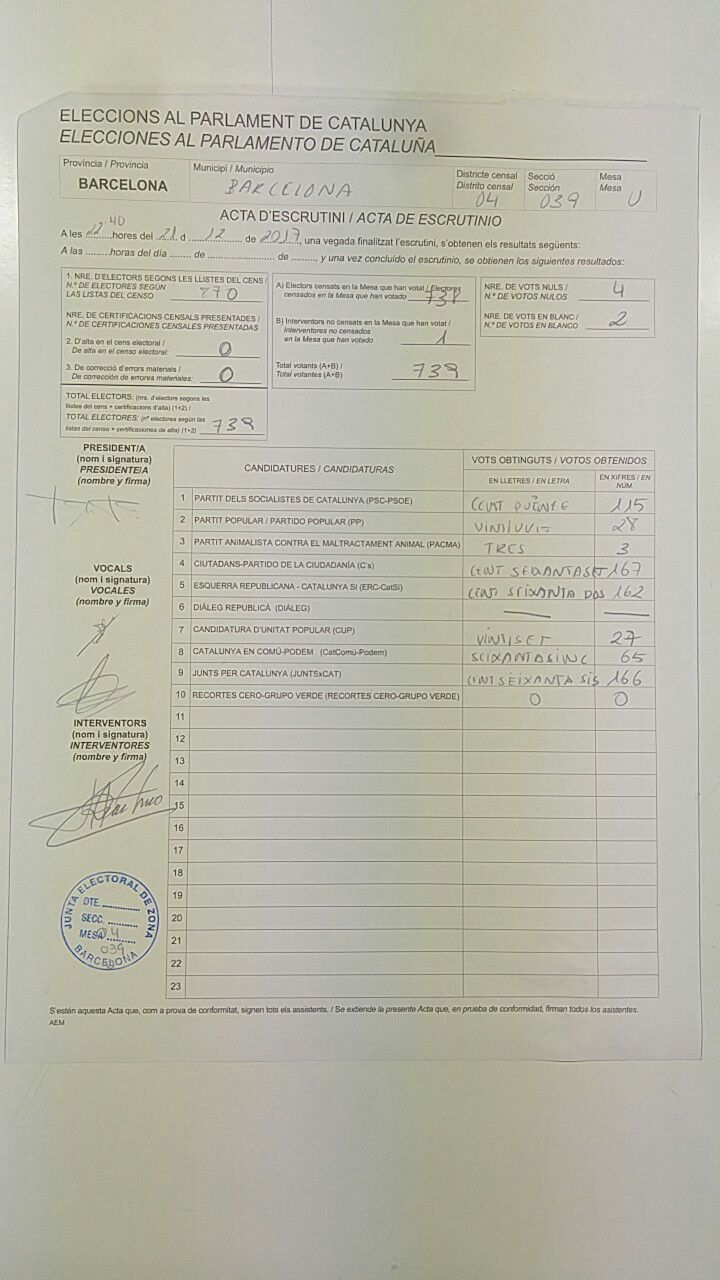 ELECCIONS AL PARLAMENT DE CATALUNYA
ELECCIONES AL PARLAMENTO DE CATALUÑA
Província / Provincia
BARCELONA
Municipi / Municipio
BARCELONA
Districte censal
Distrito censal
04
Secció
Sección
039
Mesa
Mesa
U
ACTA D'ESCRUTINI / ACTA DE ESCRUTINIO
A les 22:40 hores del 21 d 12 de 2017, una vegada finalitzat l'escrutini, s'obtenen els resultats següents:
A las ........horas del día ....... de ....................... de ........, y una vez concluído el escrutinio, se obtienen los siguientes resultados:
1. NRE. D'ELECTORS SEGONS LES LLISTES DEL CENS /
N.º DE ELECTORES SEGÚN
LAS LISTAS DEL CENSO
770
NRE. DE CERTIFICACIONS CENSALS PRESENTADES /
N.º DE CERTIFICACIONES CENSALES PRESENTADAS
2. D'alta en el cens electoral /
De alta en el censo electoral:
0
3. De correcció d'errors materials /
De corrección de errores materiales:
0
TOTAL ELECTORS: (nre. d'electors segons les
llistes del cens + certificacions d'alta) (1+2) /
TOTAL ELECTORES: (nº electores según las
listas del censo + certificaciones de alta) (1+2)
739
A) Electors censats en la Mesa que han votat / Electores
censados en la Mesa que han votado
738
B) Interventors no censats en la Mesa que han votat /
Interventores no censados
en la Mesa que han votado
1
Total votants (A+B) /
Total votantes (A+B)
739
NRE. DE VOTS NULS /
N.º DE VOTOS NULOS
4
NRE. DE VOTS EN BLANC /
N.º DE VOTOS EN BLANCO
2
PRESIDENT/A
(nom i signatura)
PRESIDENTE/A
(nombre y firma)
VOCALS
(nom i signatura)
VOCALES
(nombre y firma)
INTERVENTORS
(nom i signatura)
INTERVENTORES
(nombre y firma)
CANDIDATURES / CANDIDATURAS
VOTS OBTINGUTS / VOTOS OBTENIDOS
EN LLETRES / EN LETRA
EN XIFRES / EN NÚM.
1 PARTIT DELS SOCIALISTES DE CATALUNYA (PSC-PSOE) CENT QUINFE 115
2 PARTIT POPULAR / PARTIDO POPULAR (PP) VINTIVUIT 28
3 PARTIT ANIMALISTA CONTRA EL MALTRACTAMENT ANIMAL (PACMA) TRES 3
4 CIUTADANS-PARTIDO DE LA CIUDADANÍA (C's) CENT SEIXANTASET 167
5 ESQUERRA REPUBLICANA - CATALUNYA SI (ERC-CatSí) CENT SEIXANTA DOS 162
6 DIÀLEG REPUBLICÀ (DIÀLEG)
7 CANDIDATURA D'UNITAT POPULAR (CUP) VINTISET 27
8 CATALUNYA EN COMÚ-PODEM (CatComú-Podem) SEIXANTASINC 65
9 JUNTS PER CATALUNYA (JUNTSxCAT) CENT SEIXANTA SIS 166
10 RECORTES CERO-GRUPO VERDE (RECORTES CERO-GRUPO VERDE) 0 0
11
12
13
14
15
16
17
18
19
20
21
22
23
JUNTA ELECTORAL DE ZONA
DTE.
SECC.
MESA
04
039
U
BARCELONA
S'estén aquesta Acta que, com a prova de conformitat, signen tots els assistents. / Se extiende la presente Acta que, en prueba de conformidad, firman todos los asistentes.
AEM